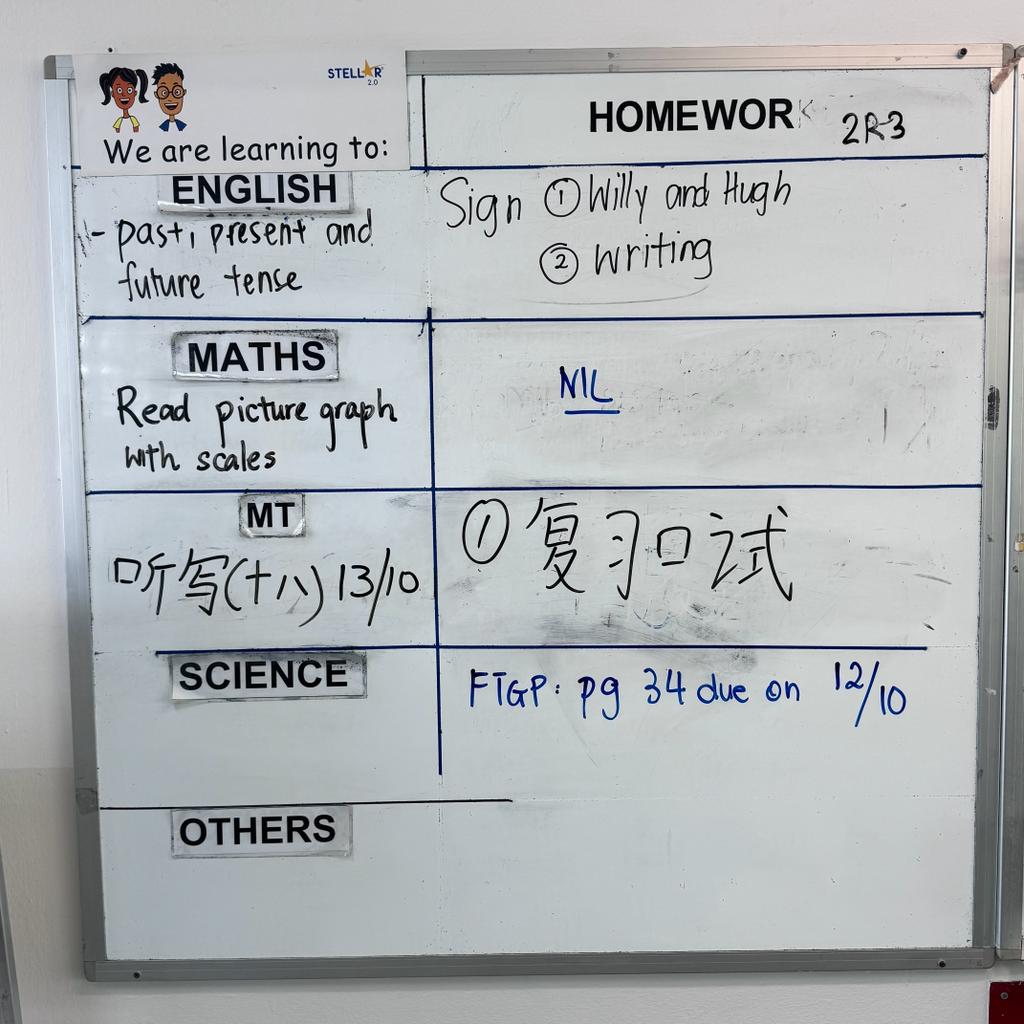 STELLAR 2.0
We are learning to:
HOMEWORK 2R3
ENGLISH
- past, present and
future tense
Sign ① Willy and Hugh
② Writing
MATHS
Read picture graph
with scales
NIL
MT
听写(十八) 13/10
① 复习口试
SCIENCE
FTGP: pg 34 due on 12/10
OTHERS